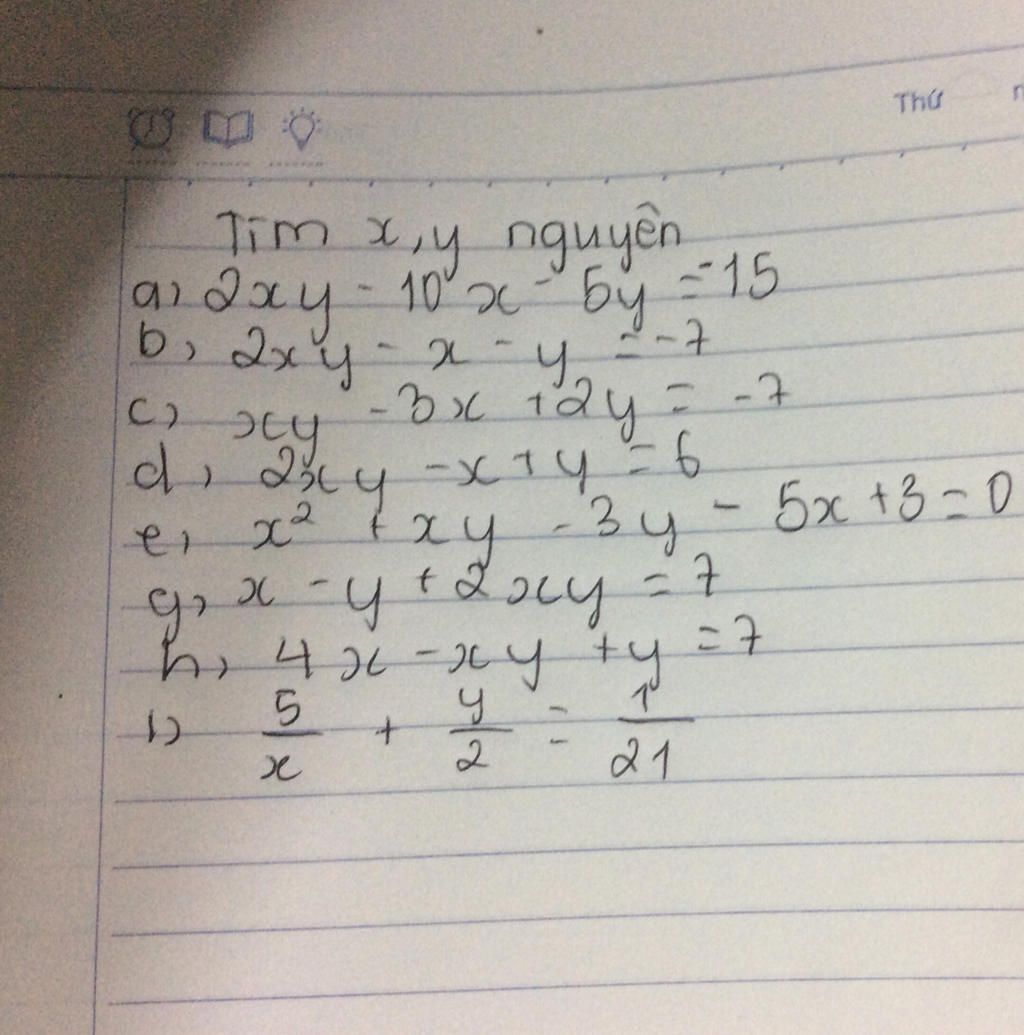 Thứ
Tìm x, y nguyên
a, 2xy - 10x - 5y = -15
b, 2xy - x - y = -7
c, xy - 3x + 2y = -7
d, 2xy - x + y = 6
e, x² + xy - 3y - 5x + 3 = 0
g, x - y + 2xy = 7
h, 4x - xy + y = 7
i, 5/x + y/2 = 1/21